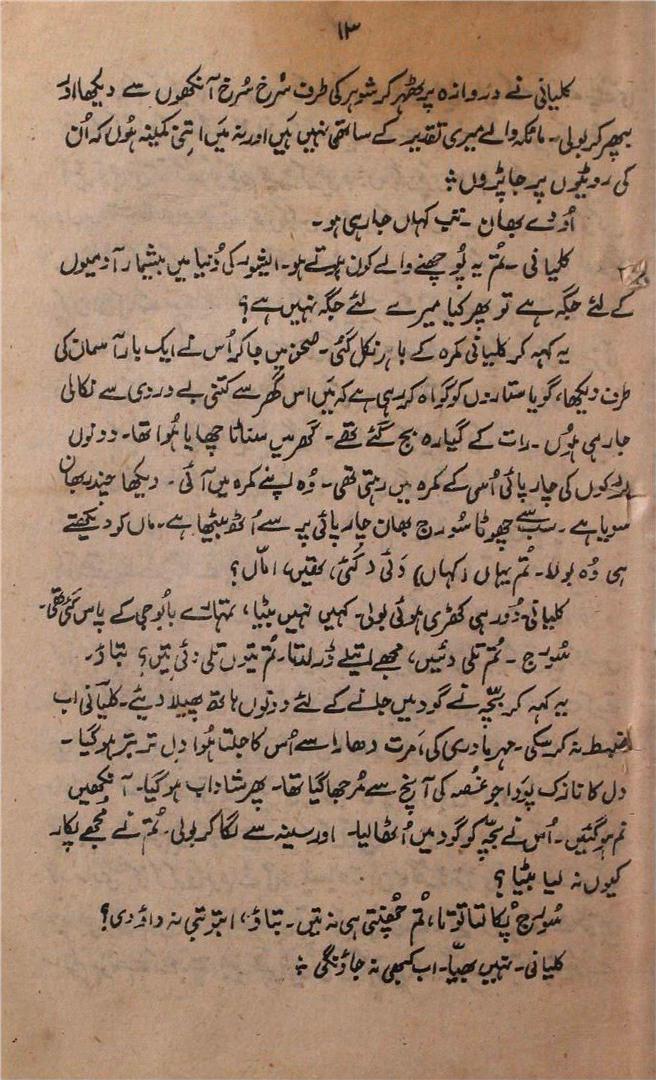 ۱۳
کلیانی نے دروازہ پر ٹھہر کر شوہر کی طرف سُرخ سُرخ آنکھوں سے دیکھا اور
بپھر کر بولی۔ مائکہ والے میری تقدیر کے ساتھی نہیں ہیں اور نہ میں اتنی کمینہ ہُوں کہ اُن
کی روٹیوں پر جا پڑوں ؞
اُودے بھان۔ تب کہاں جا رہی ہو۔
کلیانی۔ تُم یہ پُوچھنے والے کون ہوتے ہو۔ ایشور کی دُنیا میں بیشمار آدمیوں
کے لئے جگہ ہے تو پھر کیا میرے لئے جگہ نہیں ہے؟
یہ کہہ کر کلیانی کمرہ کے باہر نکل گئی۔ صحن میں جا کر اُس نے ایک بار آسمان کی
طرف دیکھا، گویا ستاروں کو گواہ کر رہی ہے کہ میں اس گھر سے کتنی بے دردی سے نکالی
جا رہی ہوں۔ رات کے گیارہ بج گئے تھے۔ گھر میں سناٹا چھایا ہُوا تھا۔ دونوں
لڑکوں کی چارپائی اُسی کے کمرہ میں رہتی تھی۔ وُہ اپنے کمرہ میں آئی۔ دیکھا چندر بھان
سویا ہے۔ سب سے چھوٹا سُورج بھان چارپائی پر سے اُٹھ بیٹھا ہے۔ ماں کو دیکھتے
ہی وُہ بولا۔ تُم یہاں (کہاں) دَئی د گئی، تھیں، امّاں؟
کلیانی۔ دُور ہی کھڑی ہوئی بولی۔ کہیں نہیں بیٹا، تمہارے بابُوجی کے پاس گئی تھی۔
سُورج۔ تُم تلی دئیں، مجھے اتیلے ڈر لدتا۔ تُم تیوں تلی دئی تیں؟ بتاؤ۔
یہ کہہ کر بچّہ نے گود میں جانے کے لئے دونوں ہاتھ پھیلا دیئے۔ کلیانی اب
ضبط نہ کر سکی۔ مہر مادری کی اَمرت دھارا سے اُس کا جلتا ہُوا دل تر بتر ہو گیا۔
دل کا نازک پودا جو غُصہ کی آنچ سے مُرجھا گیا تھا۔ پھر شاداب ہو گیا۔ آنکھیں
نم ہو گئیں۔ اُس نے بچّہ کو گود میں اُٹھا لیا۔ اور سینہ سے لگا کر بولی۔ تُم نے مُجھے پکار
کیوں نہ لیا بیٹا؟
سُورج پُکالتا تو تا، تُم چھُنتی ہی نہ تیں۔ بتاؤ، اب تو تبی نہ داؤدی؟
کلیانی۔ نہیں بھیّا۔ اب کبھی نہ جاؤنگی ؞